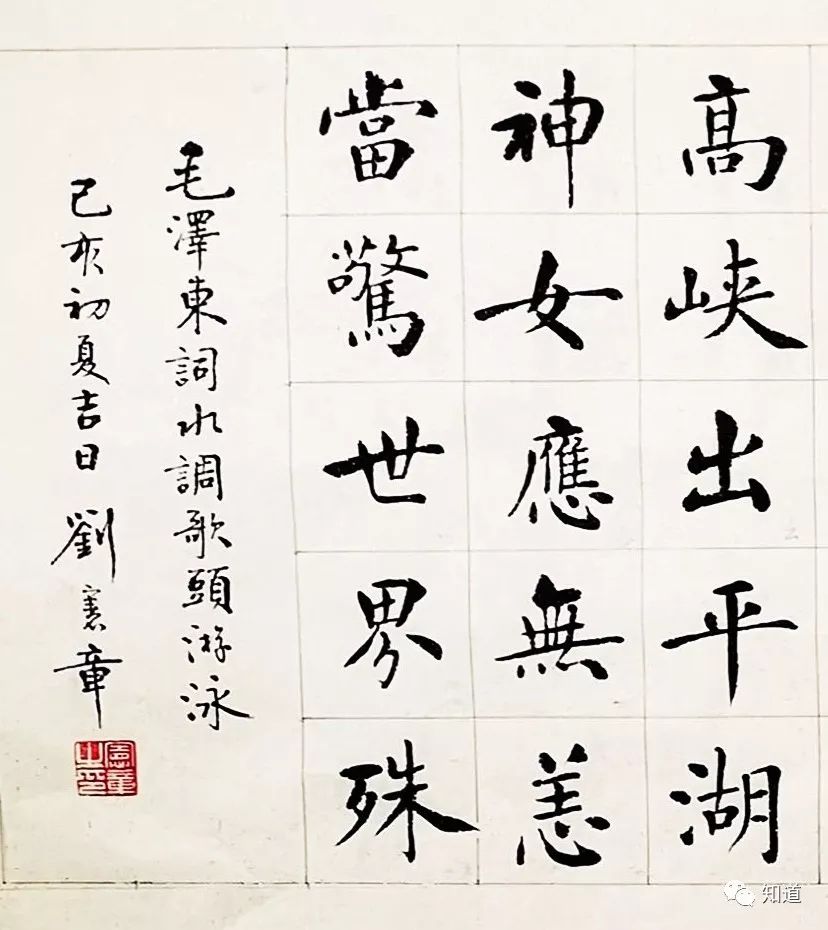 高峡出平湖
神女應無恙
當驚世界殊
毛澤東詞水調歌頭游泳
己亥初夏吉日 劉憲章
憲章之印
知道